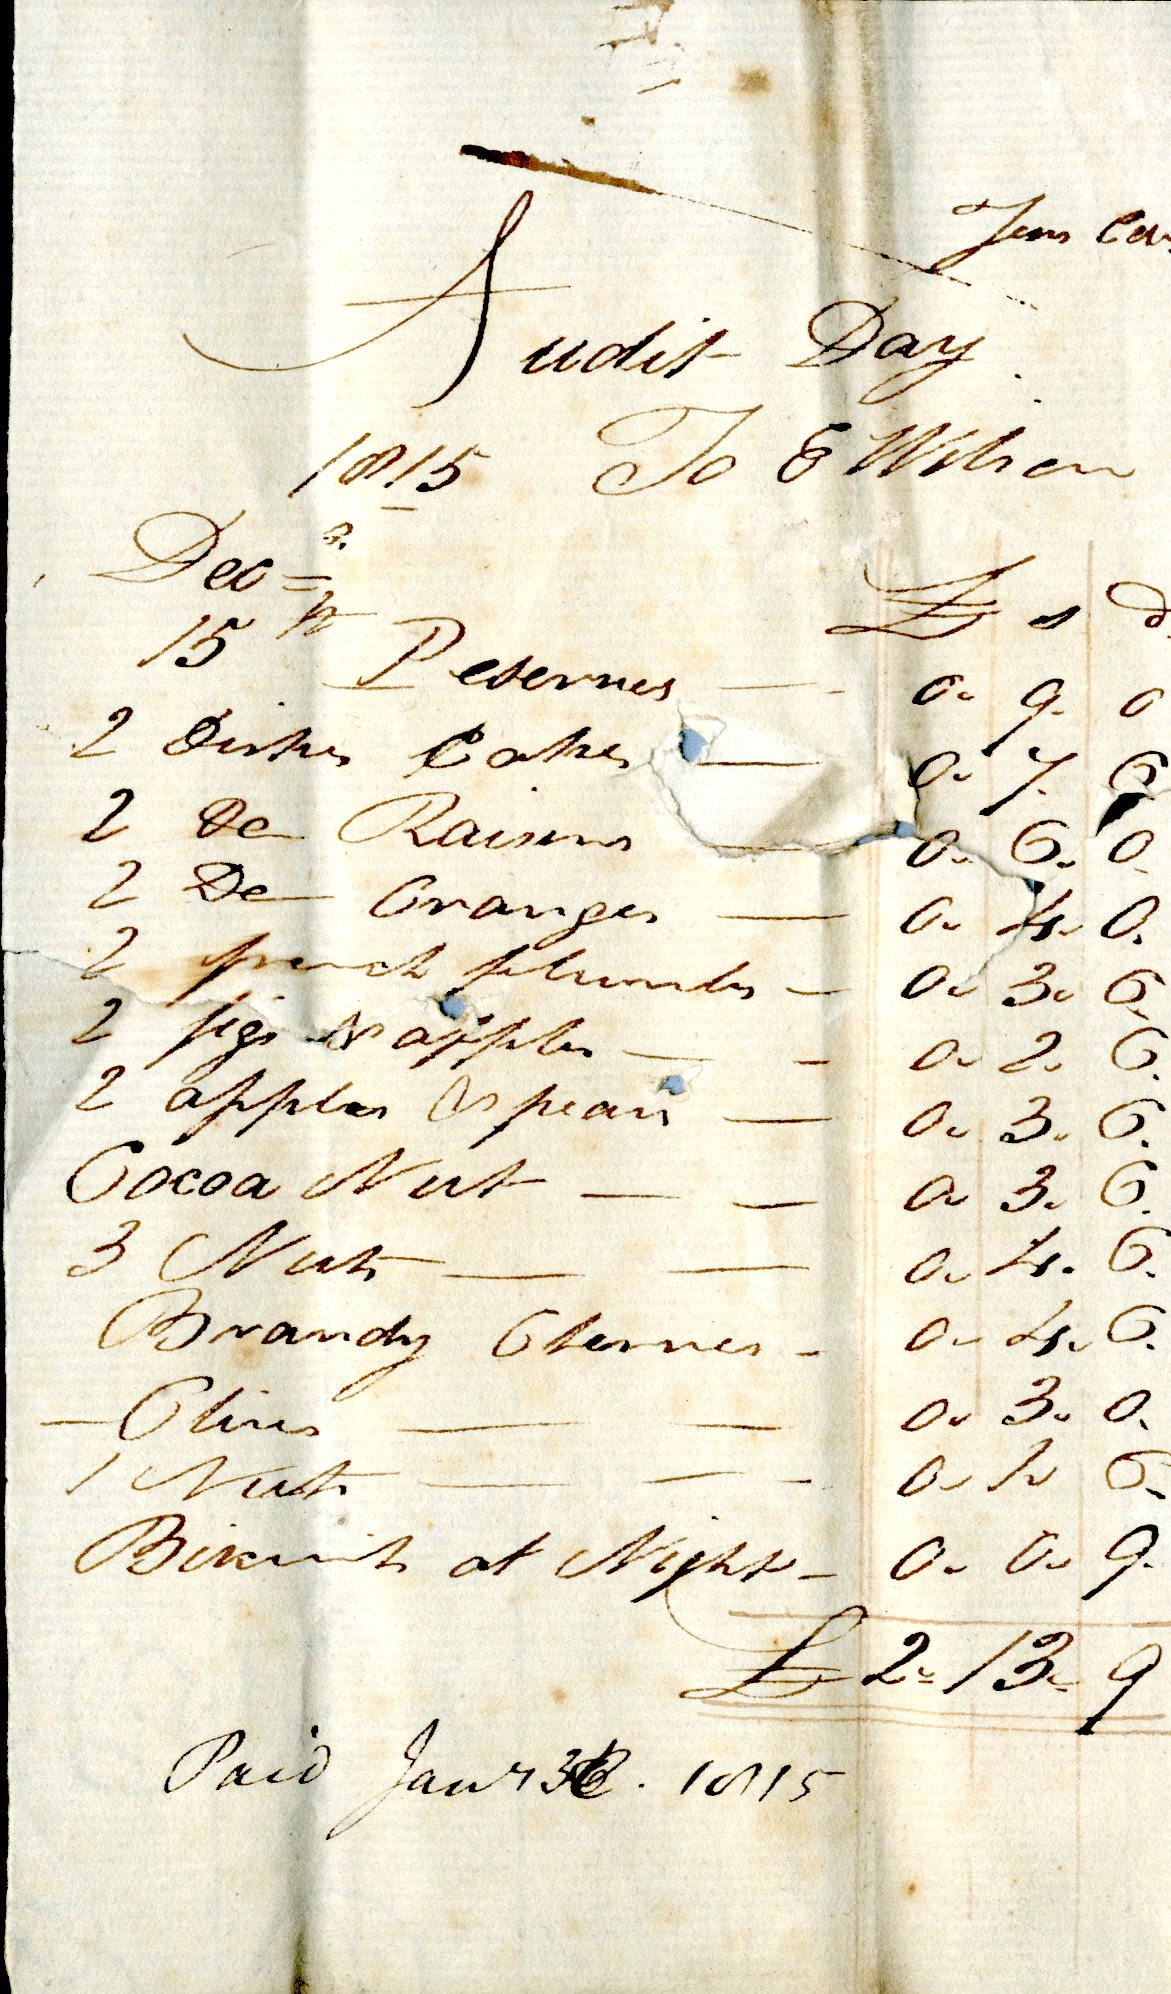 Audit Day
1815 To E Wilson
Dec=r £ s d.
15th Peserves — 0. 9. 0
2 Dishes Cakes — 0. 7. 6
2 Do Raisins — 0. 6. 0
2 Do Oranges — 0. 4. 0.
2 french plumbs — 0. 3. 6.
2 figs & apples — - 0. 2. 6.
2 apples & pears — 0. 3. 6.
Cocoa Nut — — 0. 3. 6.
3 Nuts — — 0. 4. 6.
Brandy Cherries - 0. 4. 6.
— Olives — — 0. 3. 0.
1 Nuts — — - 0. 1. 6.
Biscuits at Night - 0. 0. 9.
£ 2. 13. 9
Paid Jany . 1815